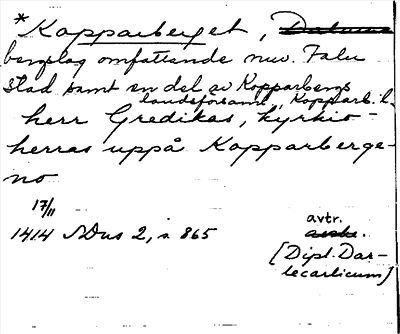 * Kopparberget, Dalarna
bergslag omfattande nuv. Falu
stad samt en del av Kopparbergs
landsförsaml., Kopparb. l.
herr Gredikas, kyrkio-
herras uppå Kopparberge-
no
17/11
1414 SDns 2, s. 865
avtr.
[Dipl. Dar-
lecarlicum]